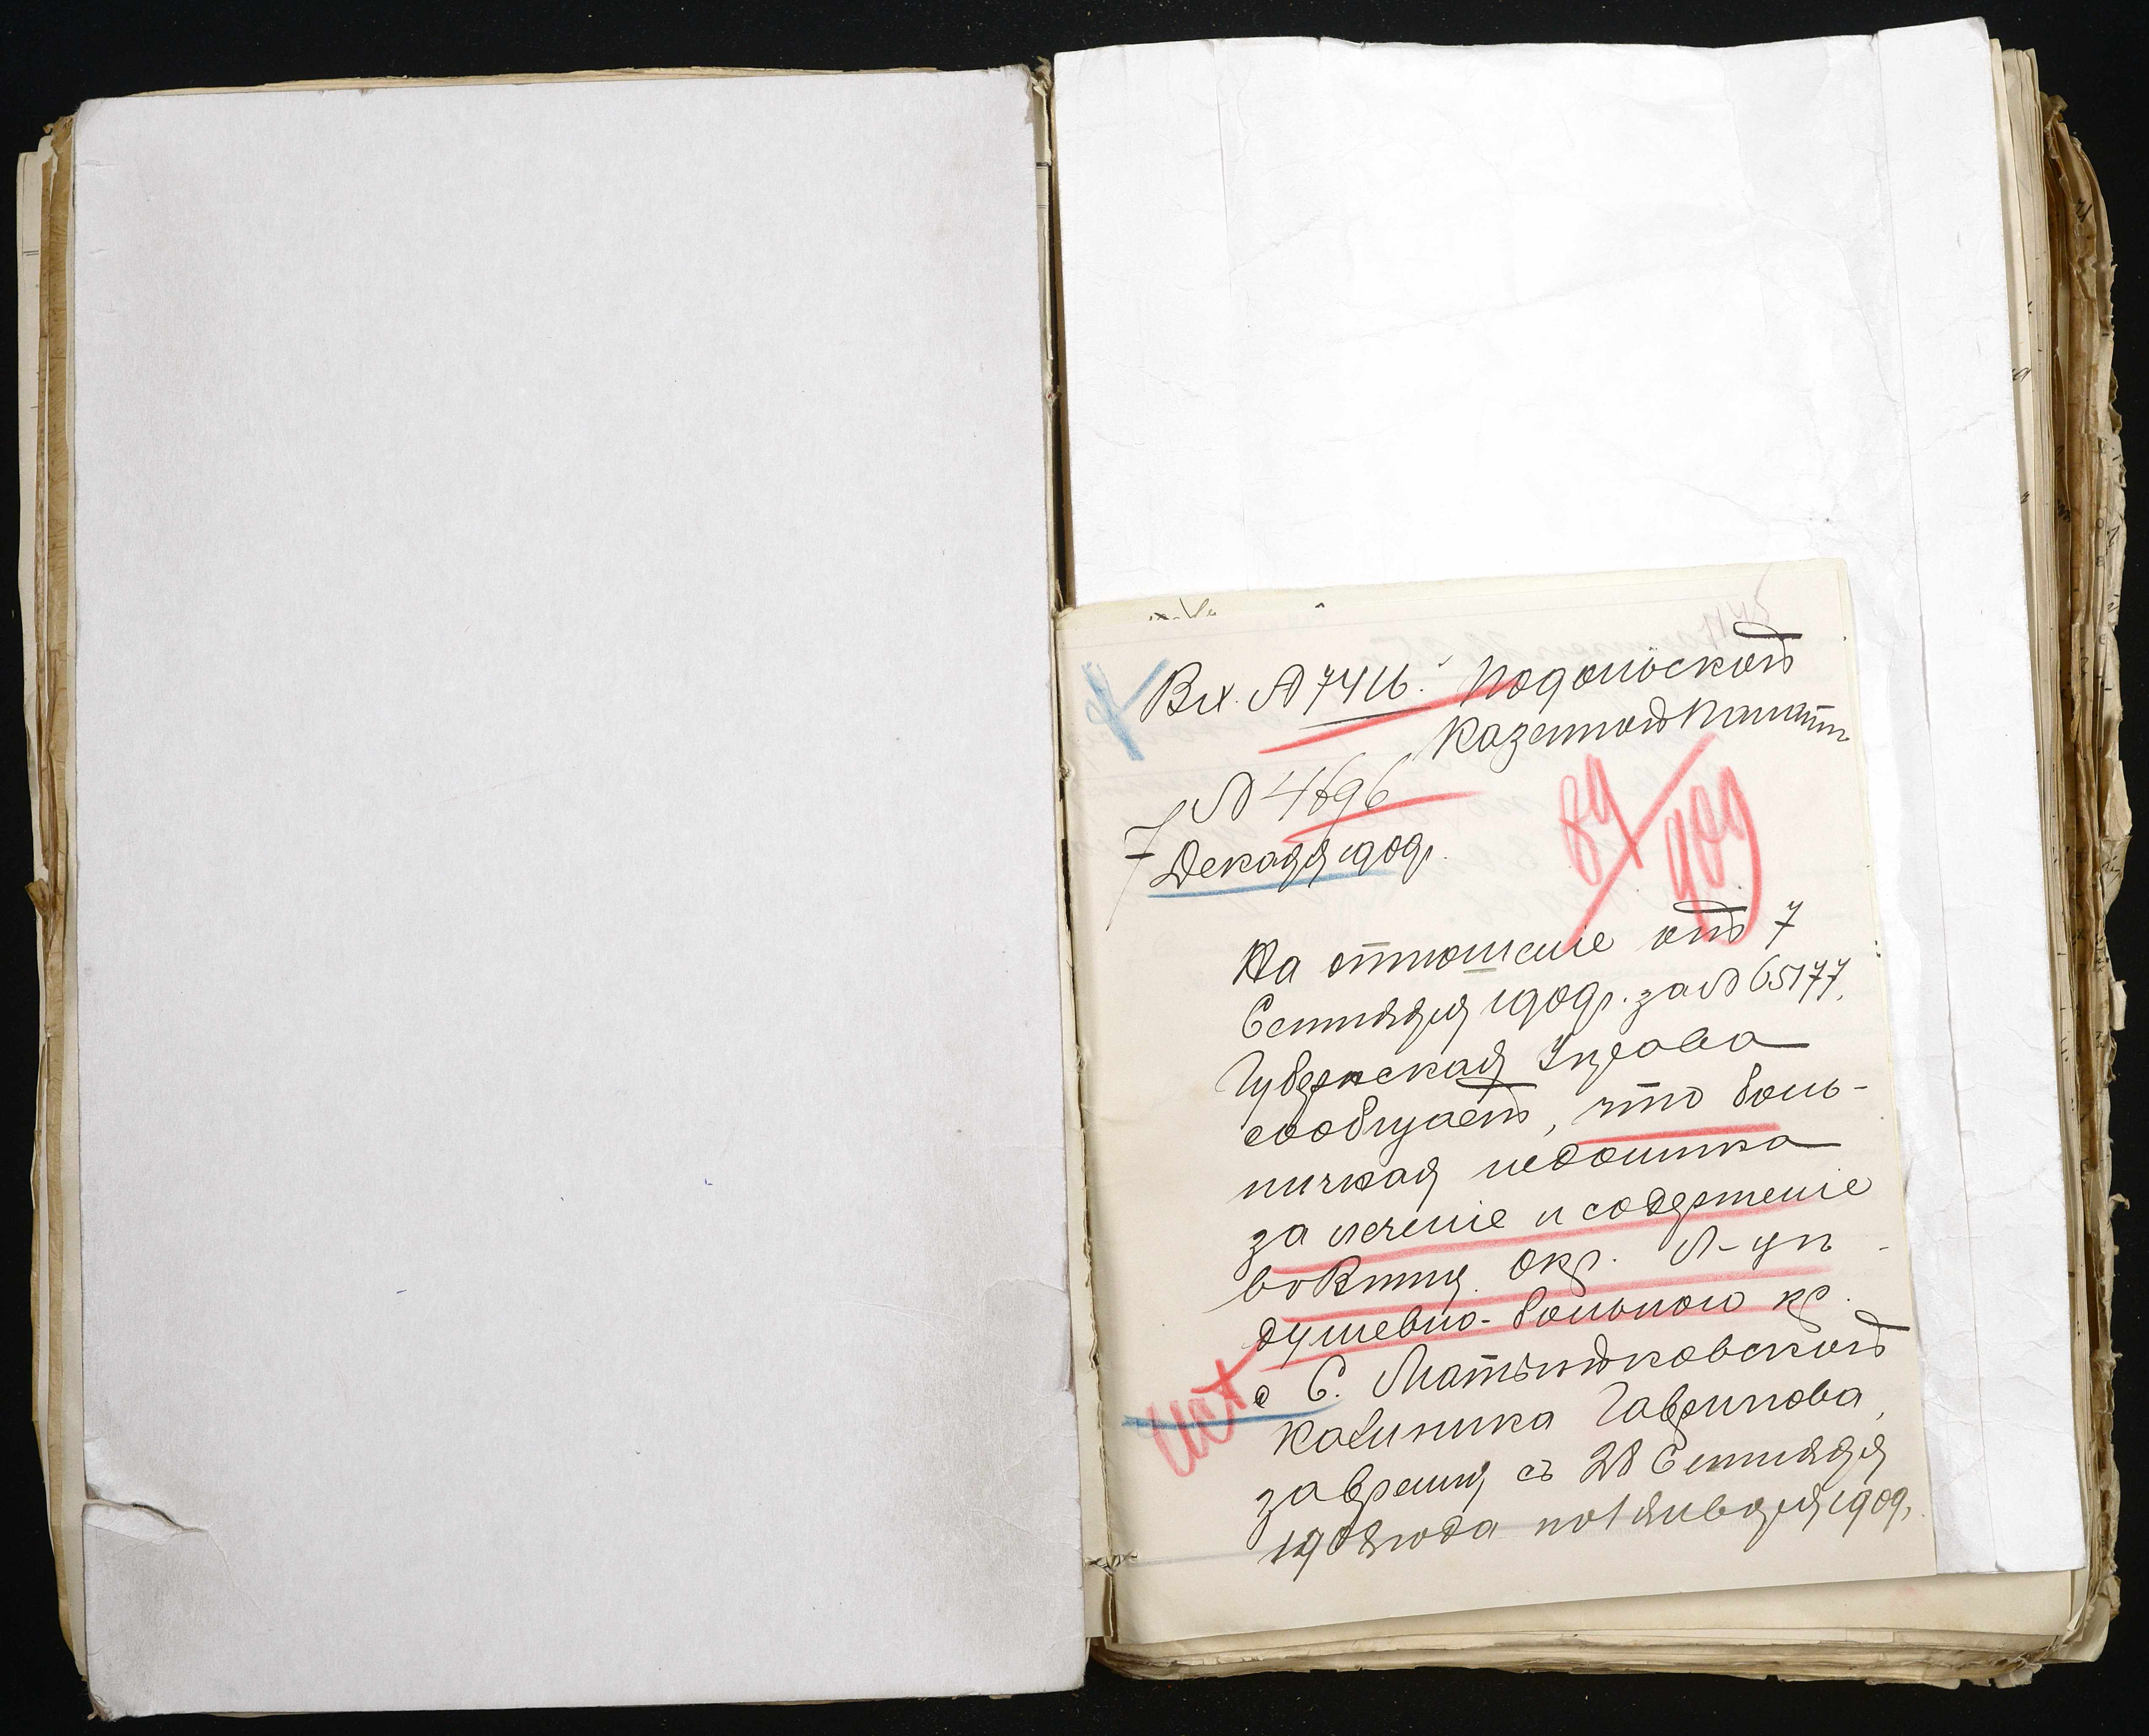 Вх. № 7416. Подольской
Казенной Палатѣ
№ 4696
7 Декабря 1909 г.
89/909
На отношеніе отъ 7
Сентября 1909 г. за № 65177,
Губернская Управа
сообщаетъ, что боль-
ничная недоимка
за леченіе и содержаніе
въ Винниц. Окр. Л-цѣ
душевно-больного кр.
с. С.
Калиника Гаврилова,
за время съ 28 Сентября
1908 года по 1 Января 1909 г.